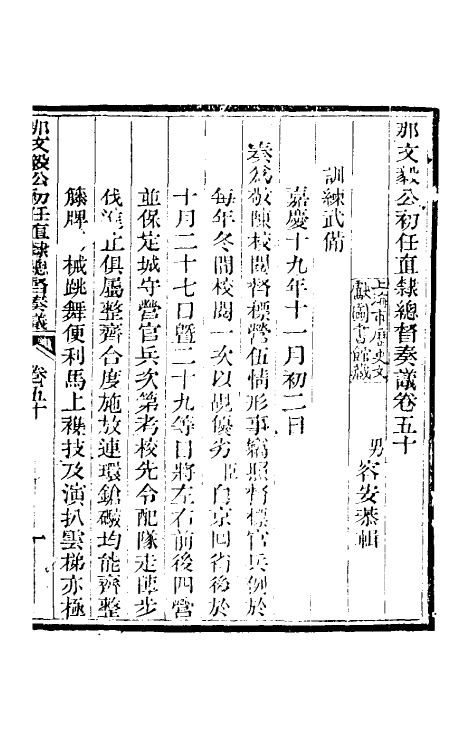 那文毅公初任直隸總督奏議卷五十
上海市歷史文
獻圖書館藏
男容安恭輯
訓練武備
嘉慶十九年十一月初二日
奏爲敬陳校閱督標營伍情形事竊照督標官兵例於
每年冬間校閱一次以覘優劣臣自京回省後於
十月二十七日暨二十九等日將左右前後四營
並保定城守營官兵次第考校先令配隊走陣步
伐進止俱屬整齊合度施放連環鎗礮均能齊整
籐牌 械跳舞便利馬上雜技及演扒雲梯亦極
那文毅公初任直隸總督奏議
卷五十
一